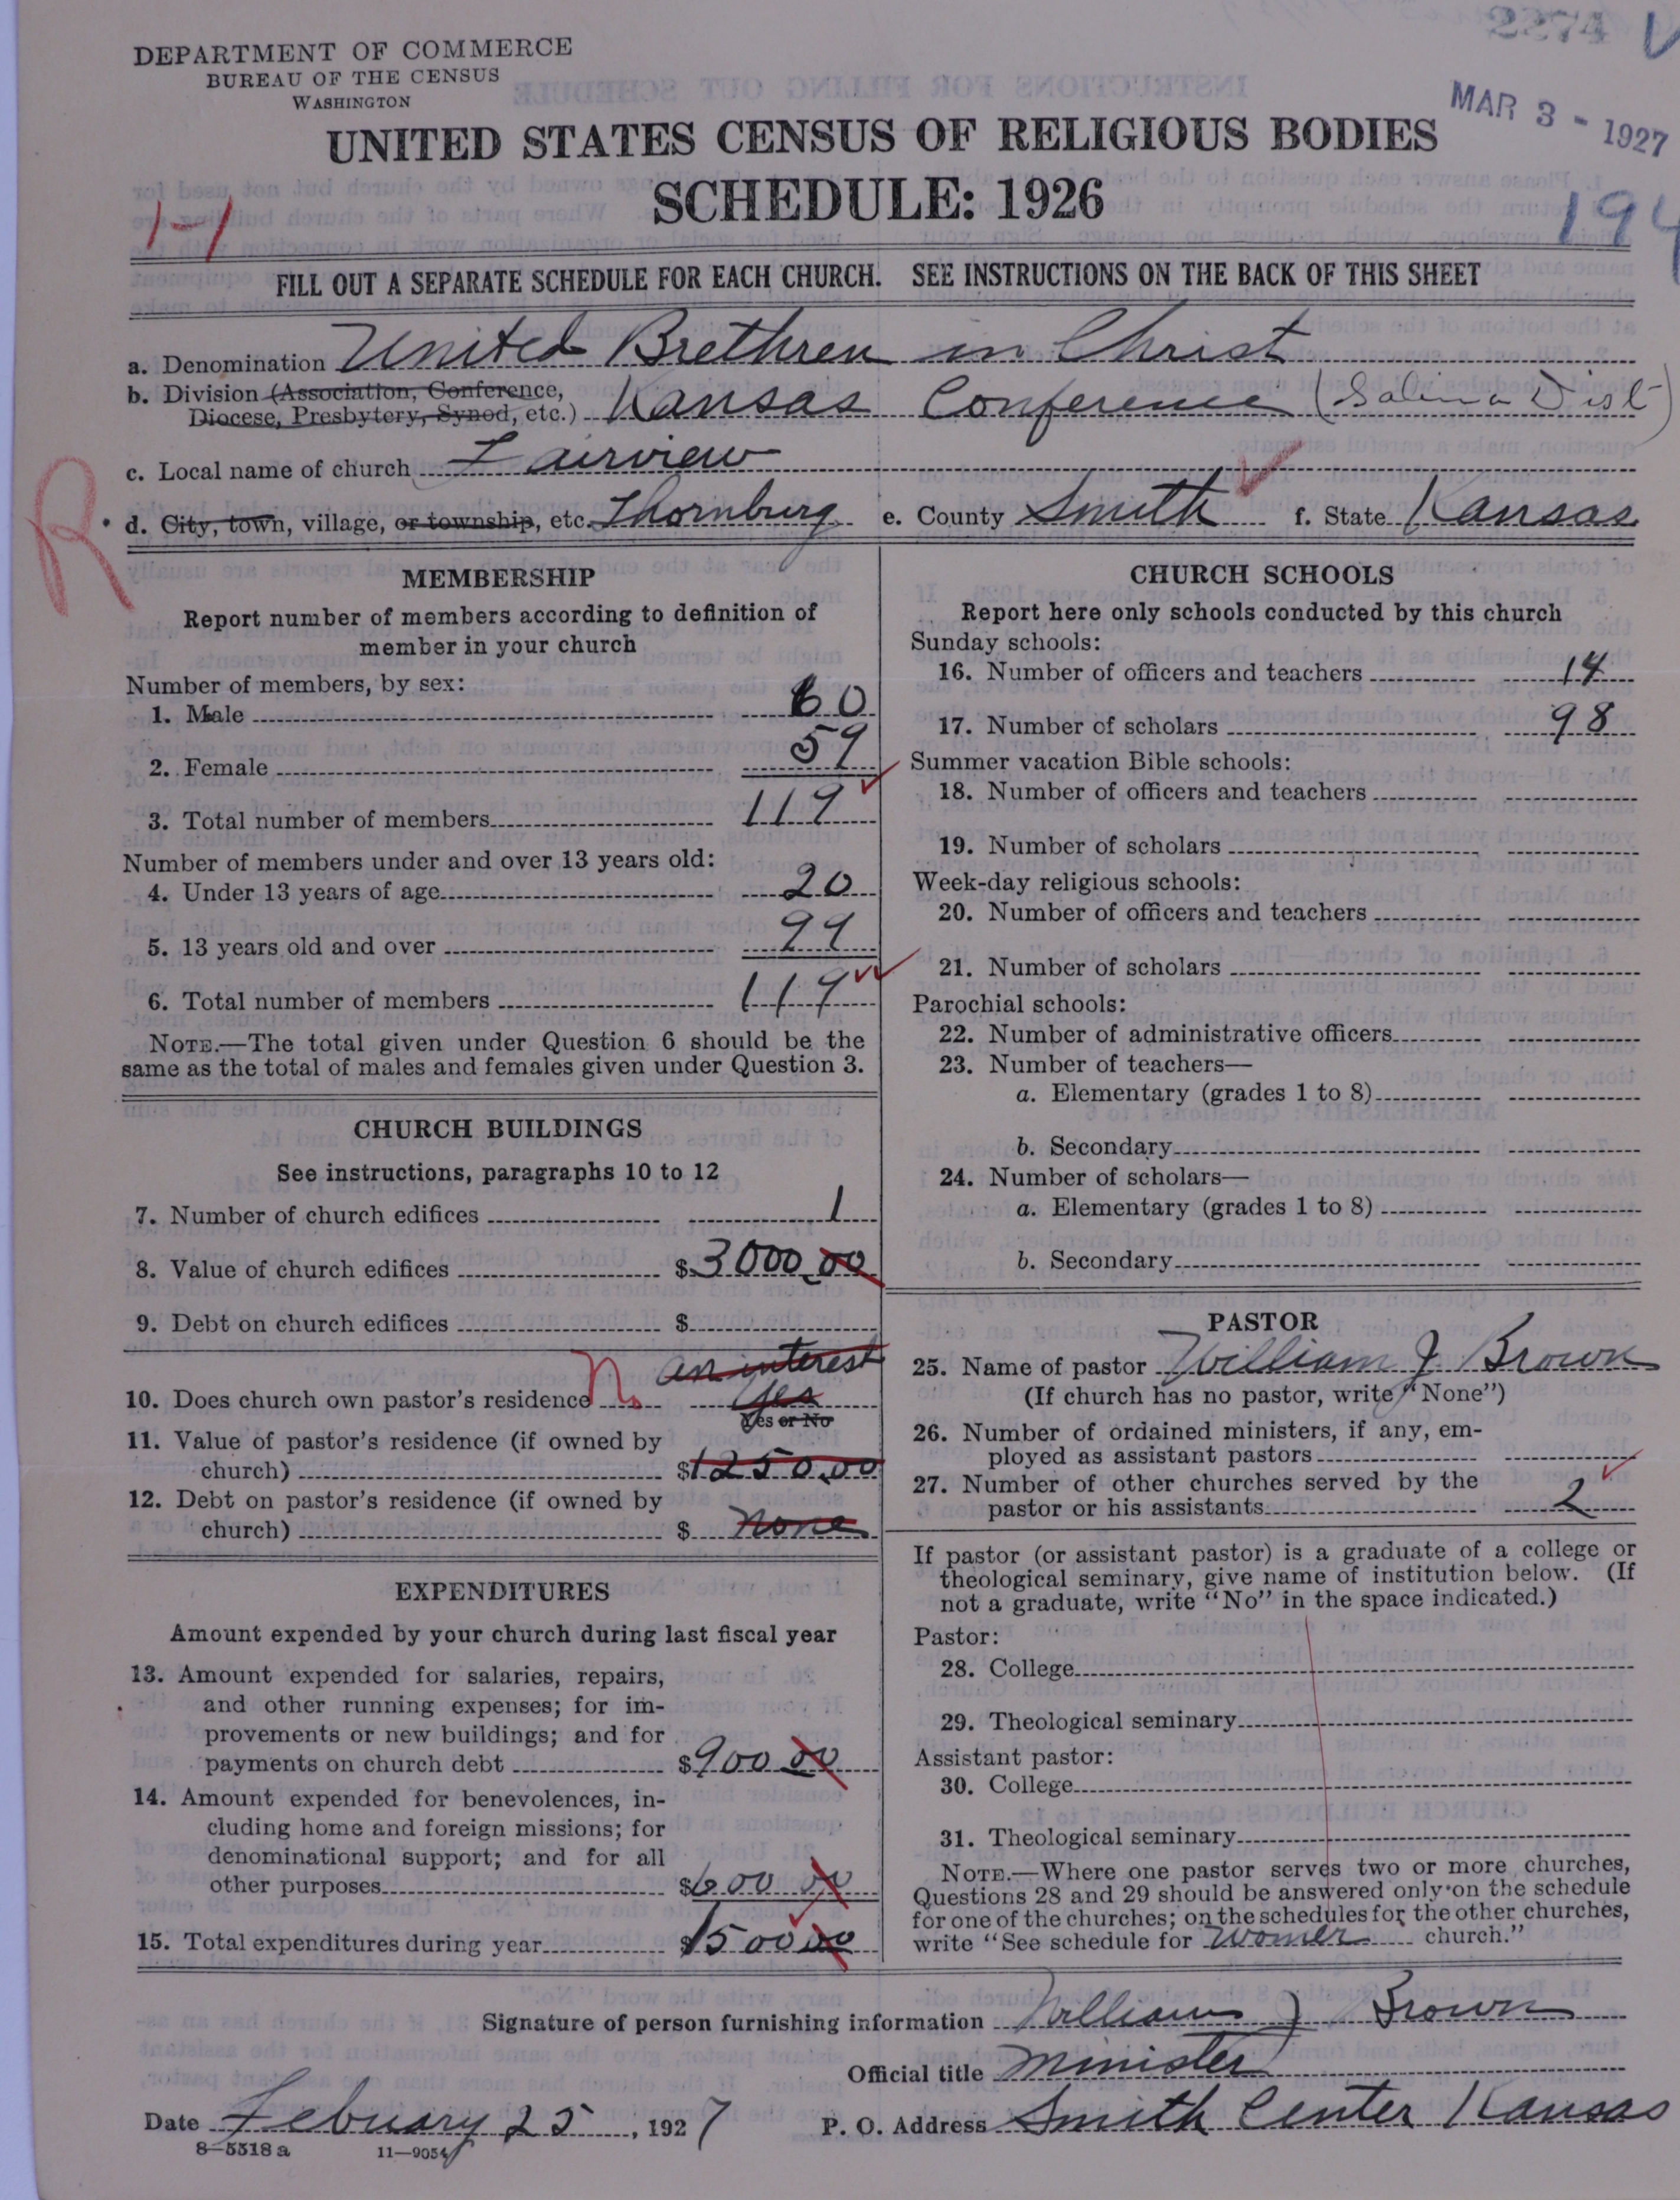 2274
DEPARTMENT OF COMMERCE
BUREAU OF THE CENSUS
WASHINGTON
MAR 3 - 1927
UNITED STATES CENSUS OF RELIGIOUS BODIES
SCHEDULE: 1926
1-1
194
FILL OUT A SEPARATE SCHEDULE FOR EACH CHURCH. SEE INSTRUCTIONS ON THE BACK OF THIS SHEET
a. Denomination United Brethren in Christ
b. Division (Association, Conference,
Diocese, Presbytery, Synod, etc.) Kansas Conference (Salina Dist)
c. Local name of church Fairview
R
d. City, town, village, or township, etc. Thornburg e. County Smith f. State Kansas
MEMBERSHIP
Report number of members according to definition of
member in your church
Number of members, by sex:
1. Male 60
2. Female 59
3. Total number of members 119
Number of members under and over 13 years old:
4. Under 13 years of age 20
5. 13 years old and over 99
6. Total number of members 119
NOTE.—The total given under Question 6 should be the
same as the total of males and females given under Question 3.
CHURCH BUILDINGS
See instructions, paragraphs 10 to 12
7. Number of church edifices 1
8. Value of church edifices $3000.00
9. Debt on church edifices $
an interest
10. Does church own pastor's residence No Yes
Yes or No
11. Value of pastor's residence (if owned by
church) $1250.00
12. Debt on pastor's residence (if owned by
church) $ none
EXPENDITURES
Amount expended by your church during last fiscal year
13. Amount expended for salaries, repairs,
and other running expenses; for im-
provements or new buildings; and for
payments on church debt $900 00
14. Amount expended for benevolences, in-
cluding home and foreign missions; for
denominational support; and for all
other purposes $600 00
15. Total expenditures during year $1500 00
CHURCH SCHOOLS
Report here only schools conducted by this church
Sunday schools:
16. Number of officers and teachers 14
17. Number of scholars 98
Summer vacation Bible schools:
18. Number of officers and teachers
19. Number of scholars
Week-day religious schools:
20. Number of officers and teachers
21. Number of scholars
Parochial schools:
22. Number of administrative officers
23. Number of teachers—
a. Elementary (grades 1 to 8)
b. Secondary
24. Number of scholars—
a. Elementary (grades 1 to 8)
b. Secondary
PASTOR
25. Name of pastor William J. Brown
(If church has no pastor, write "None")
26. Number of ordained ministers, if any, em-
ployed as assistant pastors
27. Number of other churches served by the
pastor or his assistants 2
If pastor (or assistant pastor) is a graduate of a college or
theological seminary, give name of institution below. (If
not a graduate, write "No" in the space indicated.)
Pastor:
28. College
29. Theological seminary
Assistant pastor:
30. College
31. Theological seminary
NOTE.—Where one pastor serves two or more churches,
Questions 28 and 29 should be answered only on the schedule
for one of the churches; on the schedules for the other churches,
write "See schedule for Womer church."
Signature of person furnishing information William J Brown
Official title Minister
Date Febuary 25, 1927 P. O. Address Smith Center Kansas
8—5518 a 11—9054